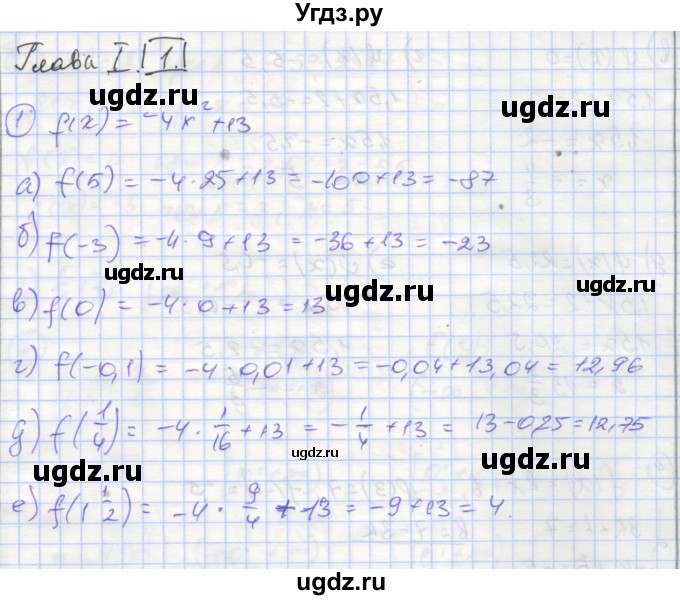 Угдз.ру
Глава I. 1.
ugdz.ru ugdz.ru
1 f(x) = -4x² + 13
ugdz.ru
а) f(5) = -4 · 25 + 13 = -100 + 13 = -87
б) f(-3) = -4 · 9 + 13 = -36 + 13 = -23
ugdz.ru ugdz.ru ugdz.ru
в) f(0) = -4 · 0 + 13 = 13
г) f(-0,1) = -4 · 0,01 + 13 = -0,04 + 13,04 = 12,96
ugdz.ru ugdz.ru
д) f(1/4) = -4 · 1/16 + 13 = -1/4 + 13 = 13 - 0,25 = 12,75
ugdz.ru ugdz.ru ugdz.ru
е) f(1 1/2) = -4 · 9/4 + 13 = -9 + 13 = 4.
ugdz.ru ugdz.ru
ugdz.ru